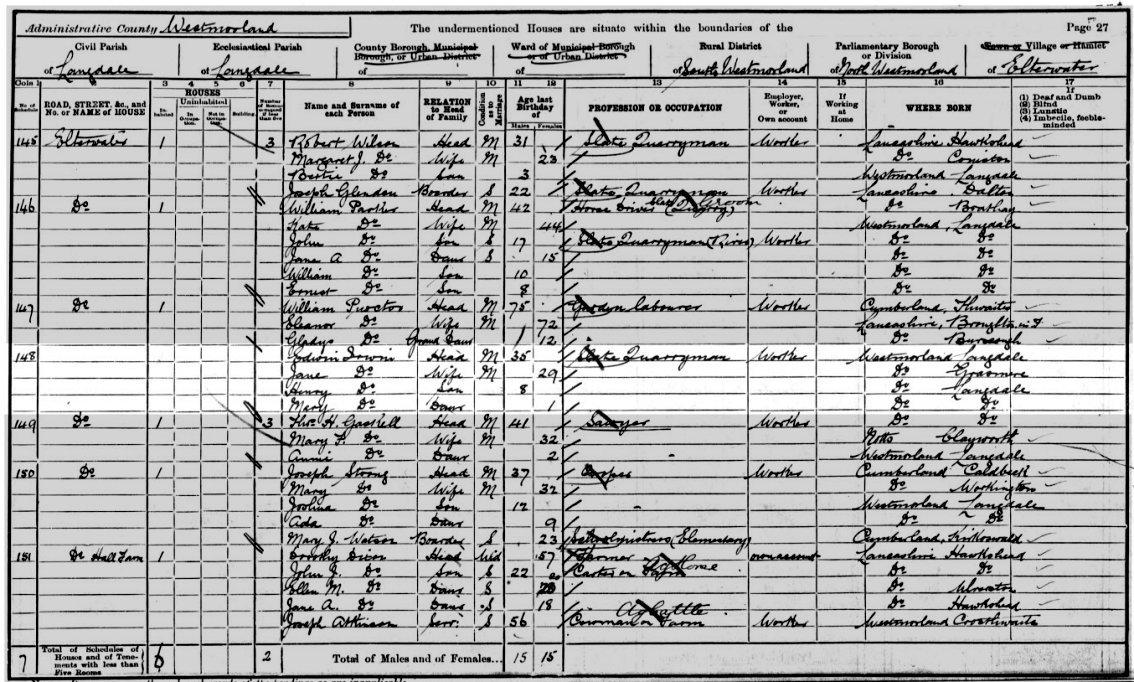 Administrative County Westmorland The undermentioned Houses are situate within the boundaries of the Page 27
Civil Parish Ecclesiastical Parish County Borough, Municipal Borough, or Urban District Ward of Municipal Borough or of Urban District Rural District Parliamentary Borough or Division Town or Village or Hamlet
of Langdale of Langdale of of of South Westmorland of North Westmorland of Elterwater
1 2 3 4 5 6 7 8 9 10 11 12 13 14 15 16 17
No. of Schedule ROAD, STREET, &c., and No. or NAME of HOUSE HOUSES Inhabited Uninhabited In Occupation Not in Occupation Building Name and Surname of each Person RELATION to Head of Family Condition as to Marriage Age last Birthday of Males Females PROFESSION OR OCCUPATION Employer, Worker, or Own account If Working at Home WHERE BORN If (1) Deaf and Dumb (2) Blind (3) Lunatic (4) Imbecile, feeble-minded
145 Elterwater 1 3 Robert Wilson Head M 31 Slate Quarryman Worker Lancashire Hawkshead
Margaret J. Do Wife M 23 Do Coniston
Bertie Do Son 3 Westmorland Langdale
Joseph Glendon Boarder S 22 Slate Quarryman Worker Lancashire Dalton
146 Do 1 William Parker Head M 42 Horse Driver (Slate Quarry) Groom Do
Kate Do Wife M 44 Westmorland, Langdale
John Do Son S 17 Slate Quarryman Worker Do Do
Jane A Do Daur S 15 Do Do
William Do Son 10 Do Do
Ernest Do Son 8 Do Do
147 Do 1 William Proctor Head M 75 Garden labourer Worker Cumberland, Thwaites
Eleanor Do Wife M 72 Lancashire, Broughton in F
Gladys Do Grand Daur 12 Do
148 Edwin Irwin Head M 35 Slate Quarryman Worker Westmorland Langdale
Jane Do Wife M 29 Do Grasmere
Henry Do Son 8 Do Langdale
Mary Do Daur 1 Do Do
149 Do 1 3 Thos H. Gaskell Head M 41 Sawyer Worker Do Do
Mary F. Do Wife M 32 Notts Clayworth
Annie Do Daur 2 Westmorland Langdale
150 Do 1 Joseph Strong Head M 37 Worker Cumberland Caldbeck
Mary Do Wife M 32 Do Workington
Do Son 12 Westmorland Langdale
Ada Do Daur 9 Do Do
Mary J. Watson Boarder S 23 Schoolmistress (Elementary) Cumberland, Kirkoswald
151 Do Hall Farm 1 Dorothy Dixon Head Wid 57 Farmer own account Lancashire Hawkshead
John J. Do Son S 22 Carter on Farm Horse Do Do
Ellen M. Do Daur S 20 Do Ulverston
Jane A. Do Daur S 18 Do Hawkshead
Joseph Atkinson Serv. S 56 Cowman on Farm Ag Cattle Worker Westmorland Crosthwaite
7 Total of Schedules of Houses and of Tenements with less than Five Rooms 6 2 Total of Males and of Females... 15 15